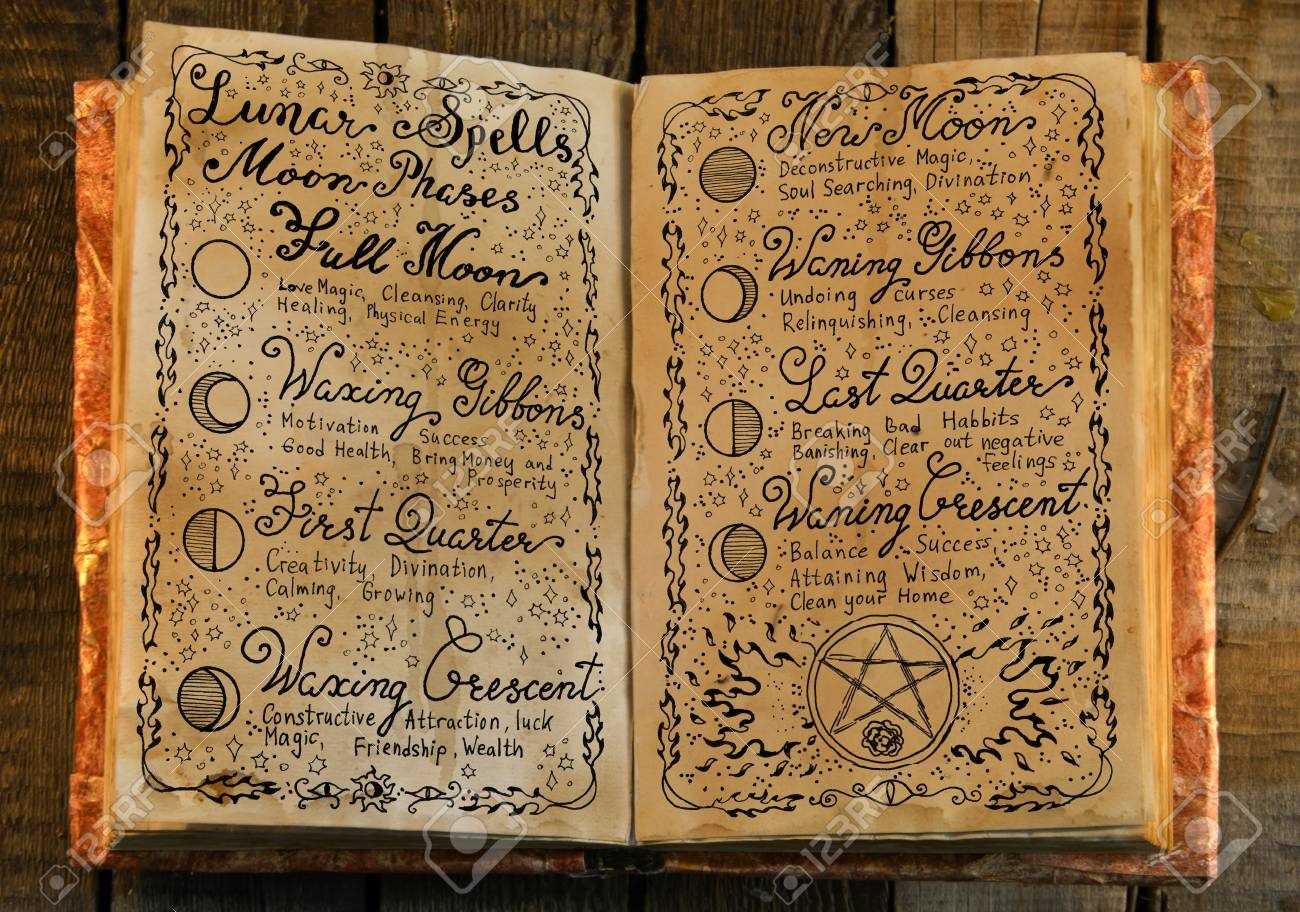 Lunar Spells
Moon Phases
Full Moon
Love Magic, Cleansing, Clarity
Healing, Physical Energy
Waxing Gibbons
Motivation Success
Good Health, Bring Money and
Prosperity
First Quarter
Creativity, Divination,
Calming, Growing
Waxing Crescent
Constructive Attraction, luck
Magic, Friendship, Wealth
New Moon
Deconstructive Magic,
Soul Searching, Divination
Waning Gibbons
Undoing curses
Relinquishing, Cleansing
Last Quarter
Breaking Bad Habbits
Banishing, Clear out negative
feelings
Waning Crescent
Balance Success,
Attaining Wisdom,
Clean your Home
123RF